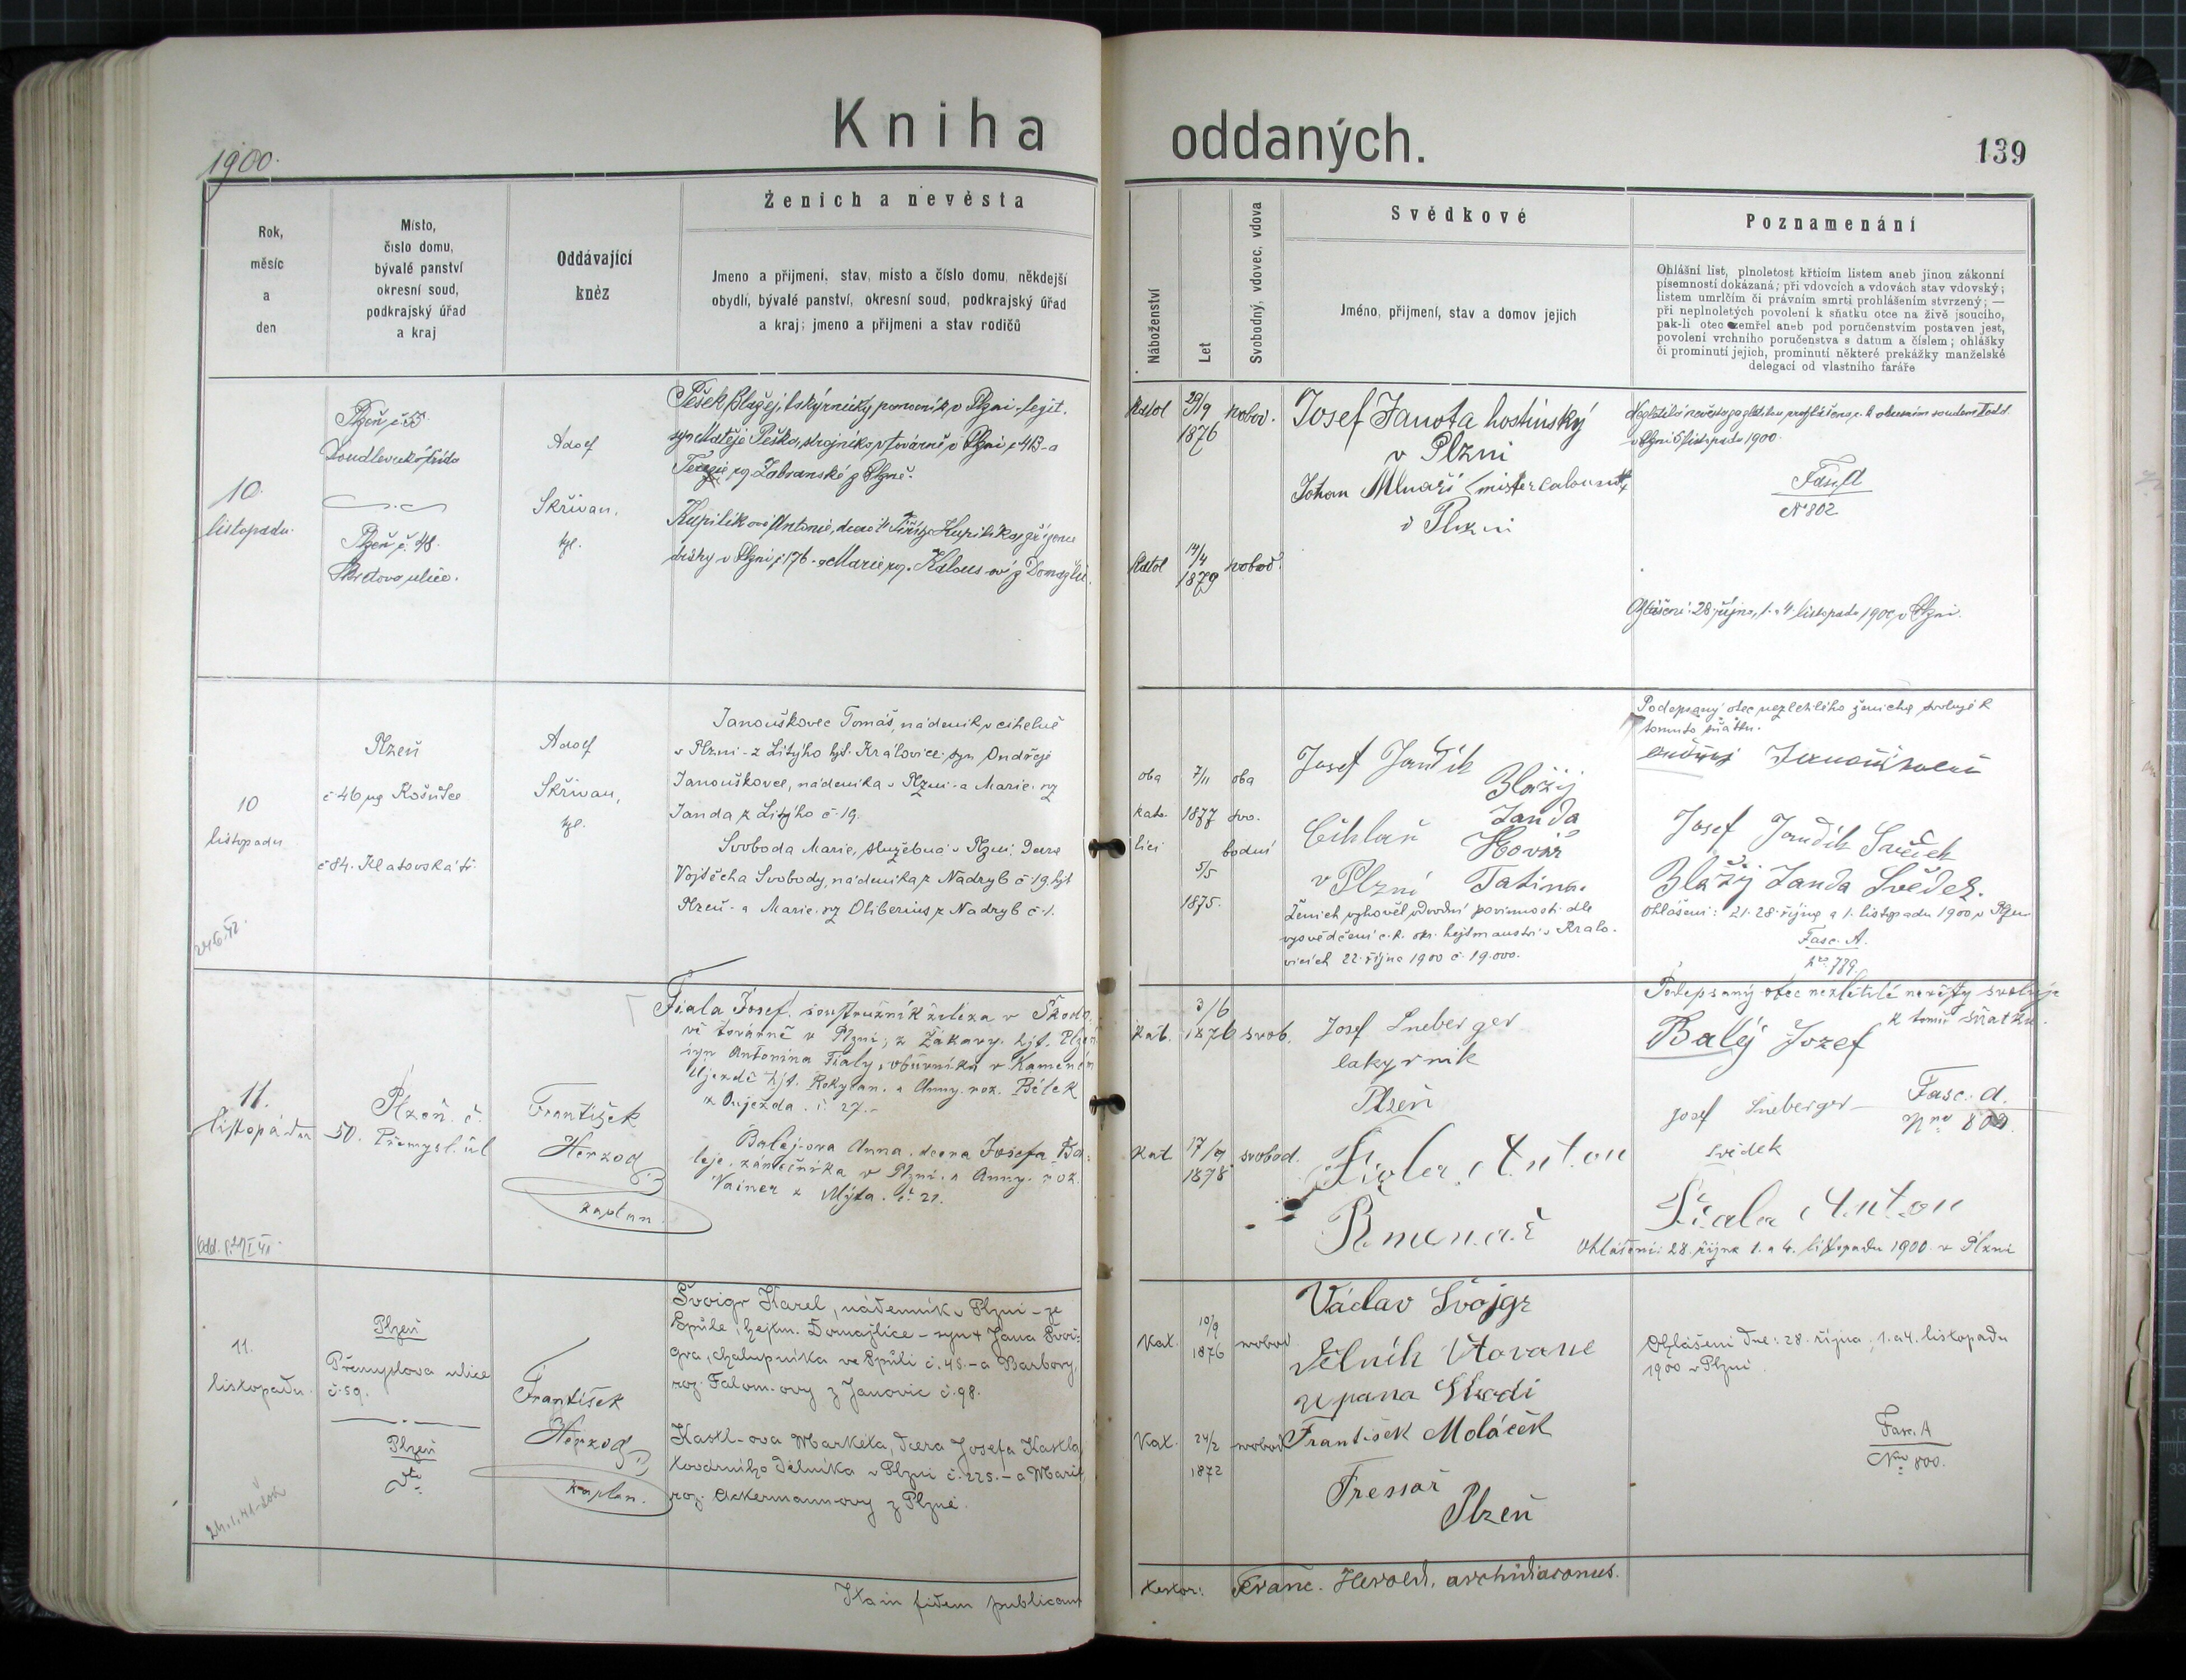 Kniha oddaných.
1900.
139
Rok,
měsíc
a
den
Místo,
číslo domu,
bývalé panství
okresní soud,
podkrajský úřad
a kraj
Oddávající
kněz
Ženich a nevěsta
Jmeno a přijmeni, stav, misto a číslo domu, někdejší
obydlí, bývalé panství, okresní soud, podkrajský úřad
a kraj; jmeno a přijmeni a stav rodičů
Náboženství
Let
Svobodný, vdovec, vdova
Svědkové
Jméno, přijmení, stav a domov jejich
Poznamenání
Ohlášní list, plnoletost křticím listem aneb jinou zákonní
písemností dokázaná; při vdovcích a vdovách stav vdovský;
listem umrlčím či právním smrti prohlášením stvrzený; —
při neplnoletých povolení k sňatku otce na živě jsoucího,
pak-li otec zemřel aneb pod poručenstvím postaven jest,
povolení vrchního poručenstva s datum a číslem; ohlášky
či prominutí jejich, prominutí některé prekážky manželské
delegací od vlastního faráře
10.
listopadu
Plzeň, č. 55
Plzeň č. 48.
ulice.
Adolf
Skřivan,
kpl.
Pešek Blažej, pomocník v Plzni - legit.
syn Matěje Peška, strojníka v továrně v Plzni, č 413 - a
Terezie roz. Zabranské z Plzně.
Antonie, dcera
v Plzni č 176. a Marie roz. Kalous-ové z Domažlic.
Katol
29/9
1876
svobod.
Katol
14/4
1879
svobod.
Josef Janota hostinský
v Plzni
Johan
v Plzni
v Plzni 5 listopadu 1900.
Fasc. A
No 802
Ohlášeni: 28. října, 1. a 4. listopadu 1900, v Plzni.
10
listopadu
24.6.42
Plzeň
č 46 Košutce
č 84. Klatovská tř.
Adolf
Skřivan,
kpl.
Janouškovec Tomáš, nádeník v cihelně
v Plzni - z Litýho hjt. Kralovice. syn Ondřeje
Janouškovce, nádeníka v Plzni - a Marie. roz
Janda z Litýho č. 19.
Svoboda Marie, služebná v Plzni. Dcera
Vojtěcha Svobody, nádeníka z Nadryb č 19. hjt
Plzeň - a Marie. roz Oliberius z Nadryb č. 1.
oba
kato.
lici
7/11
1877
5/5
1875.
oba
svo.
bodní
Josef Jandík
Cihlař
v Plzni
Blažij
Janda
Kovář
Tatina.
Ženich vyhověl odvodní povinnosti dle
vysvědčení c. k. okr. hejtmanství v Kralo-
vicích 22. října 1900 č. 19.000.
Podepsaný otec nezletilého ženicha svoluje k
tomuto sňatku.
Josef Jandík Svědek
Blažij Janda Svědek.
Ohlášeni: 21. 28. října a 1. listopadu 1900 v Plzni
Fasc. A.
No 779.
11.
listopadu
Plzeň. č.
50. Přemysl. úl
František
Herzog
kaplan.
Fiala Josef. soustružník železa v Škodo-
vě továrně v Plzni, z Žákavy. hjt. Plzeň
syn Antonína Fialy, obuvníka v Kamenném
Újezdě hjt. Rokycan. a Anny. roz. Bělek
z Oujezda. č. 27.-
Balej-ova Anna. dcera Josefa Ba-
leje. zámečníka v Plzni. a Anny. roz.
Vainer z Mýta. č. 21.
Kat.
3/6
1876
svob.
Kat
17/9
1878
svobod.
Josef Sneberger
lakyrník
Plzeň
Fiala Anton
Podepsaný otec nezletilé nevěsty svoluje
k tomu sňatku.
Balej Jozef
Josef Sneberger
svědek
Fasc. A.
Fiala Anton
Ohlášeni: 28. října 1. a 4. listopadu 1900. v Plzni
11.
listopadu.
Plzeň
Přemyslova ulice
č. 59.
Plzeň
František
Herzog
kaplan.
Švoigr Karel, nádenník v Plzni - ze
Spůle, hejtm. Domažlice - syn + Jana Švoi-
gra, chalupníka ve Spůli č. 45. - a Barbory,
roz. Falom-ovy z Janovic č. 98.
Kastl-ova Markéta, dcera Josefa Kastla,
továrního dělníka v Plzni č. 225. - a Marie,
roz. Ackermann-ovy z Plzně.
Kat.
10/9
1876
svobod
Kat.
24/2
1872
svobod
Václav Svojgr
Dělník
u pana Skodi
František Moláček
Plzeň
Ohlášeni dne: 28. října, 1. a 4. listopadu
1900 v Plzni
Fasc. A
Nro 800.
Ita in fidem publicam
testor: Franc. Herold, archidiaconus.